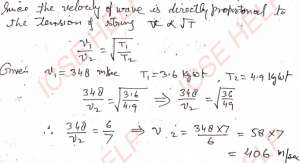 Since the velocity of wave is directly proportional to
the tension of string V ∝ √T
v₁/v₂ = √(T₁/T₂)
Given v₁ = 348 m/sec T₁ = 3.6 kgwt , T₂ = 4.9 kgwt
348/v₂ = √(3.6/4.9) ⇒ 348/v₂ = √(36/49)
∴ 348/v₂ = 6/7 ⇒ v₂ = 348×7/6 = 58×7
= 406 m/sec